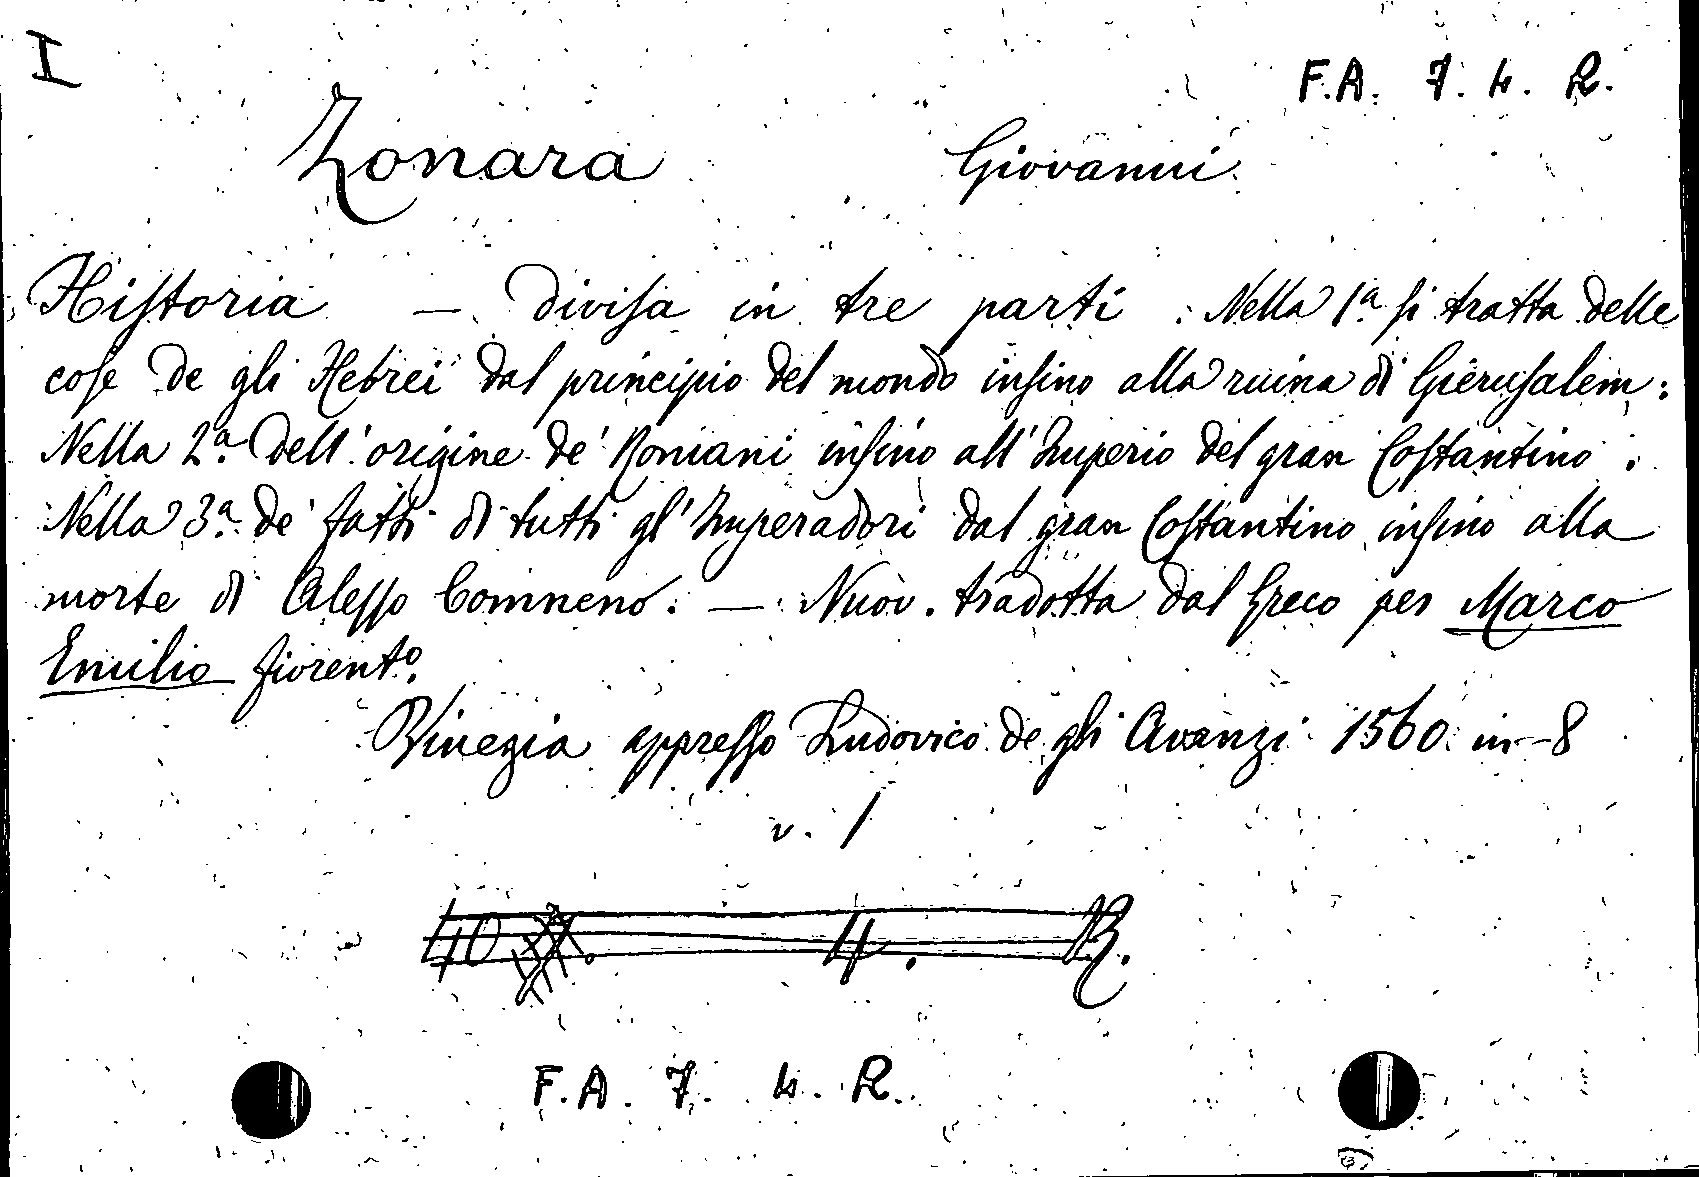 I
F.A. 7. 4. R.
Zonara Giovanni
Hiſtoria — diviſa in tre parti. Nella 1ª ſi tratta delle
coſe de gli Hebrei dal principio del mondo inſino alla ruina di Gieruſalem:
Nella 2ª dell'origine de' Romani inſino all'Imperio del gran Coſtantino:
Nella 3ª de' fatti di tutti gl'Imperadori dal gran Coſtantino inſino alla
morte di Aleſſo Comneno. — Nuov. tradotta dal Greco per Marco
Emilio fiorentº.
Vinezia appreſſo Ludovico de gli Avanzi 1560 in-8
v. 1
4. R.
F.A. 7. 4. R.